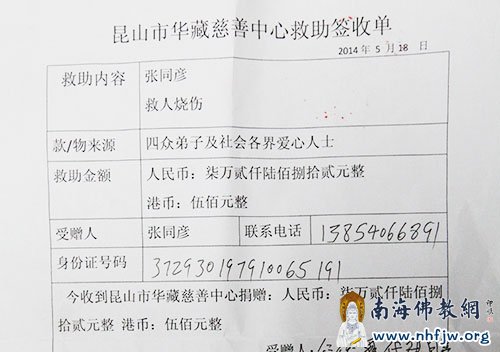 昆山市华藏慈善中心救助签收单
2014 年 5 月 18 日
救助内容 张同彦
救人烧伤
款/物来源 四众弟子及社会各界爱心人士
救助金额 人民币：柒万贰仟陆佰捌拾贰元整
港币：伍佰元整
受赠人 张同彦 联系电话 13854066891
身份证号码 372930197910065191
今收到昆山市华藏慈善中心捐赠：人民币：柒万贰仟陆佰捌
拾贰元整 港币：伍佰元整
受赠人：
南海佛教網
www.nhfjw.org